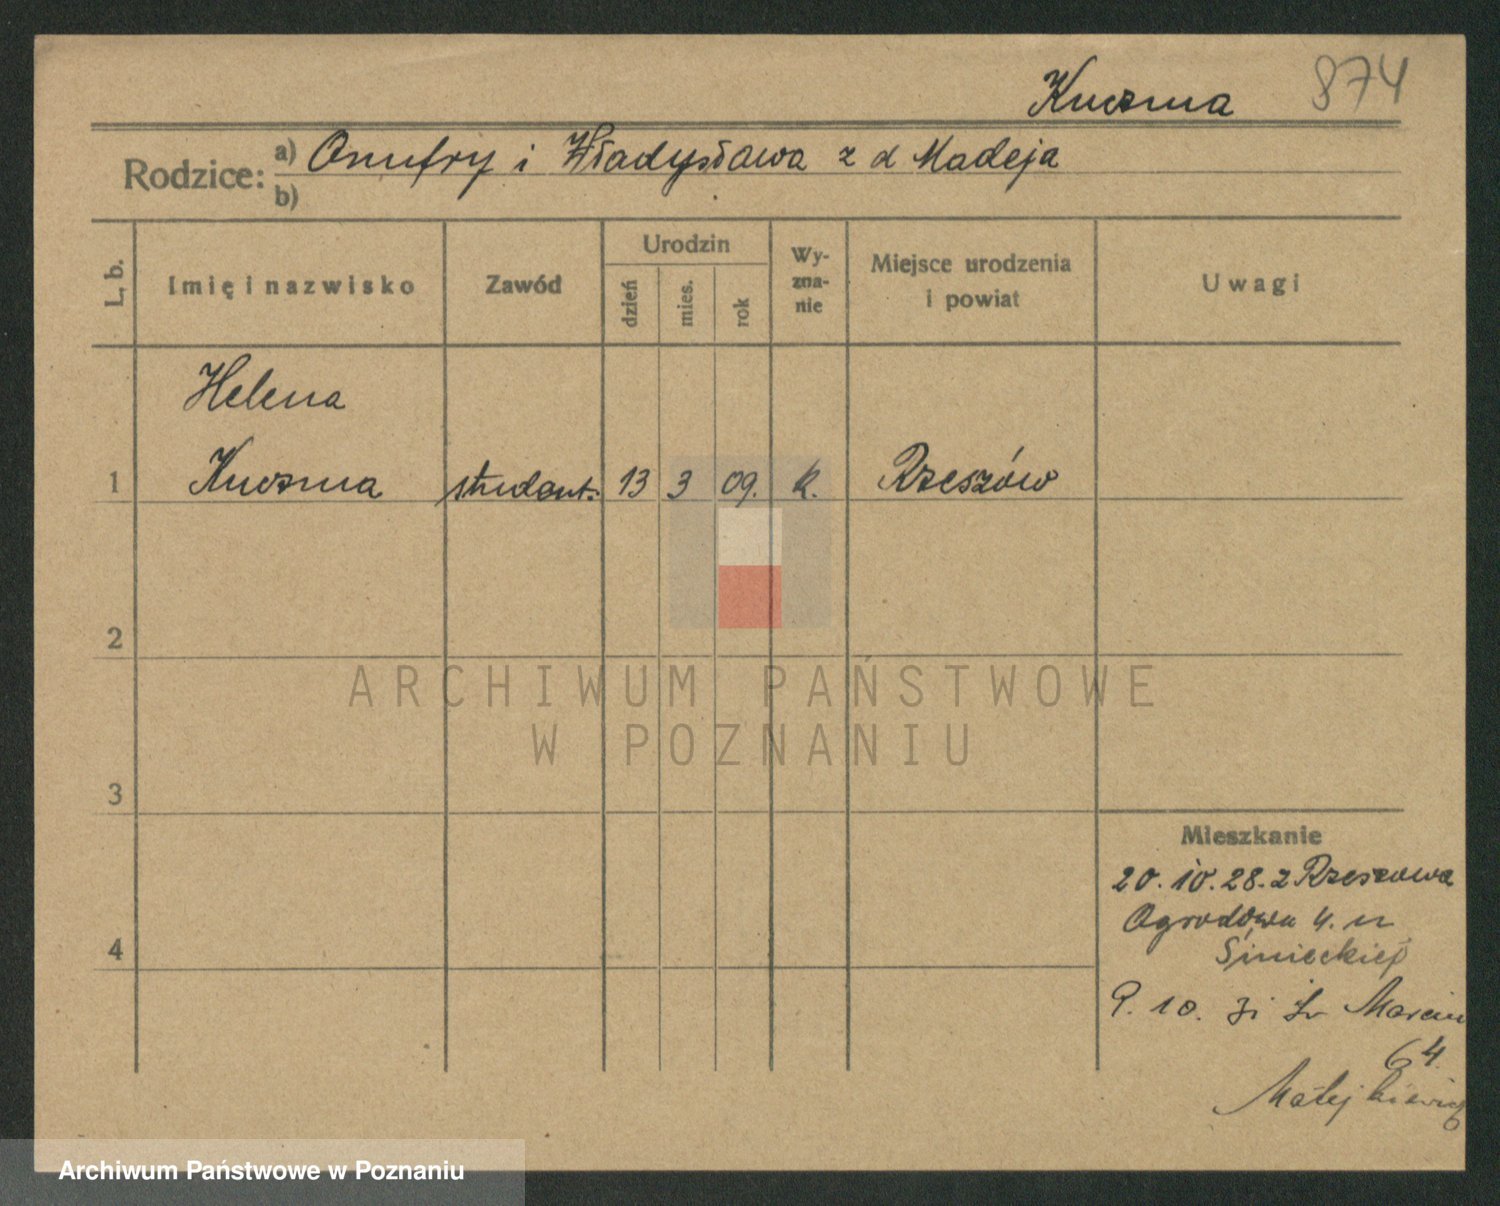 Kuczma 874
Rodzice: a) Onufry i Władysława z d Madeja
b)
L. b. Imię i nazwisko Zawód Urodzin dzień mies. rok Wy-zna-nie Miejsce urodzenia i powiat Uwagi
Helena
1 Kuczma student. 13 3 09. k. Rzeszów
2
ARCHIWUM PAŃSTWOWE
W POZNANIU
3
Mieszkanie
20.10.28. z Rzeszowa
Ogrodowa 4. u
4 Sinieckiej
9. 10. 31 Św Marcin
64
Matejkiewicz
Archiwum Państwowe w Poznaniu